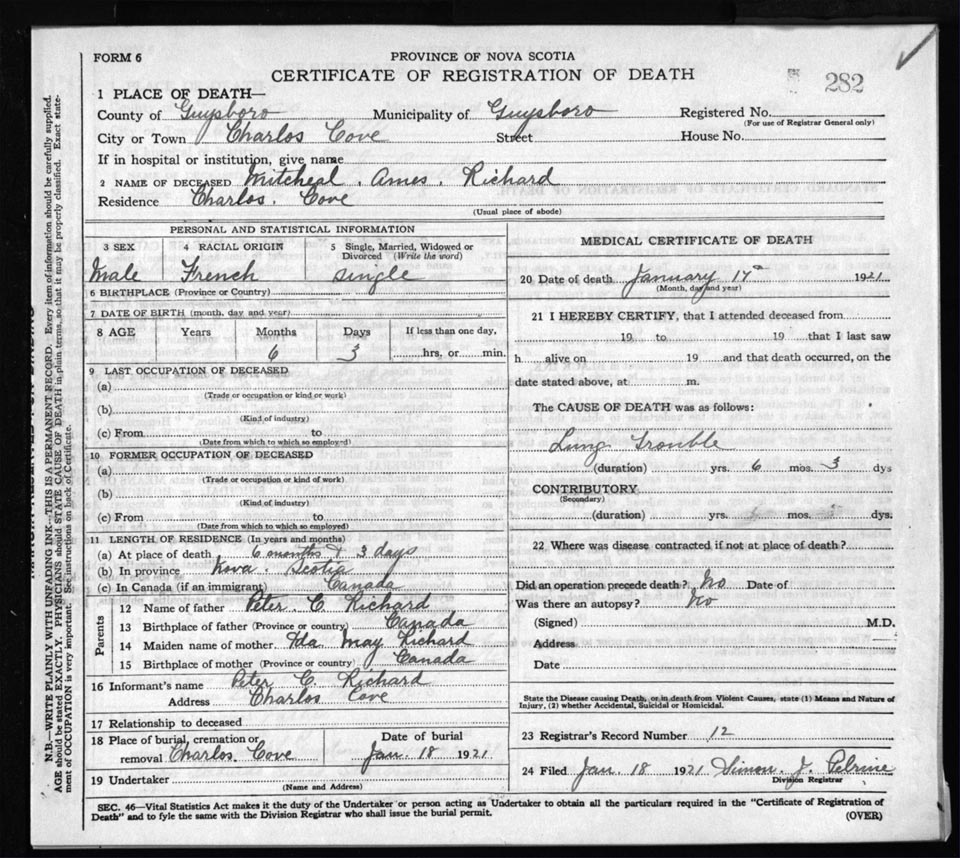 FORM 6
PROVINCE OF NOVA SCOTIA
CERTIFICATE OF REGISTRATION OF DEATH
282
1 PLACE OF DEATH—
County of Guysboro Municipality of Guysboro Registered No.
(For use of Registrar General only)
City or Town Charlos Cove Street House No.
If in hospital or institution, give name
2 NAME OF DECEASED Mitcheal . Ames . Richard
Residence Charlos . Cove
(Usual place of abode)
PERSONAL AND STATISTICAL INFORMATION
3 SEX 4 RACIAL ORIGIN 5 Single, Married, Widowed or Divorced (Write the word)
Male French single
6 BIRTHPLACE (Province or Country)
7 DATE OF BIRTH (month, day and year)
8 AGE Years Months Days If less than one day,
6 3 hrs. or min.
9 LAST OCCUPATION OF DECEASED
(a)
(Trade or occupation or kind or work)
(b)
(Kind of industry)
(c) From to
(Date from which to which so employed)
10 FORMER OCCUPATION OF DECEASED
(a)
(Trade or occupation or kind of work)
(b)
(Kind of industry)
(c) From to
(Date from which to which so employed)
11 LENGTH OF RESIDENCE (In years and months)
(a) At place of death 6 months & 3 days
(b) In province Nova . Scotia
(c) In Canada (if an immigrant) Canada
Parents
12 Name of father Peter . C . Richard
13 Birthplace of father (Province or country) Canada
14 Maiden name of mother. Ida May Richard
15 Birthplace of mother (Province or country) Canada
16 Informant's name Peter C. Richard
Address Charlos Cove
17 Relationship to deceased
18 Place of burial, cremation or removal Charlos Cove
Date of burial
Jan. 18 1921
19 Undertaker
(Name and Address)
MEDICAL CERTIFICATE OF DEATH
20 Date of death January 17th 1921
(Month, day and year)
21 I HEREBY CERTIFY, that I attended deceased from
19 to 19 that I last saw
h alive on 19 and that death occurred, on the
date stated above, at m.
The CAUSE OF DEATH was as follows:
Lung Trouble
(duration) yrs. 6 mos. 3 dys
CONTRIBUTORY
(Secondary)
(duration) yrs. mos. dys.
22 Where was disease contracted if not at place of death?
Did an operation precede death? No Date of
Was there an autopsy? No
(Signed) M.D.
Address
Date
State the Disease causing Death, or in death from Violent Causes, state (1) Means and Nature of
Injury, (2) whether Accidental, Suicidal or Homicidal.
23 Registrar's Record Number 12
24 Filed Jan. 18 1921 Simon . J. Pelrine
Division Registrar
SEC. 46—Vital Statistics Act makes it the duty of the Undertaker or person acting as Undertaker to obtain all the particulars required in the "Certificate of Registration of
Death" and to fyle the same with the Division Registrar who shall issue the burial permit. (OVER)
N.B.—WRITE PLAINLY WITH UNFADING INK—THIS IS A PERMANENT RECORD. Every item of information should be carefully supplied.
AGE should be stated EXACTLY. PHYSICIANS should STATE CAUSE OF DEATH in plain terms, so that it may be properly classified. Exact state-
ment of OCCUPATION is very important. See instructions on back of Certificate.